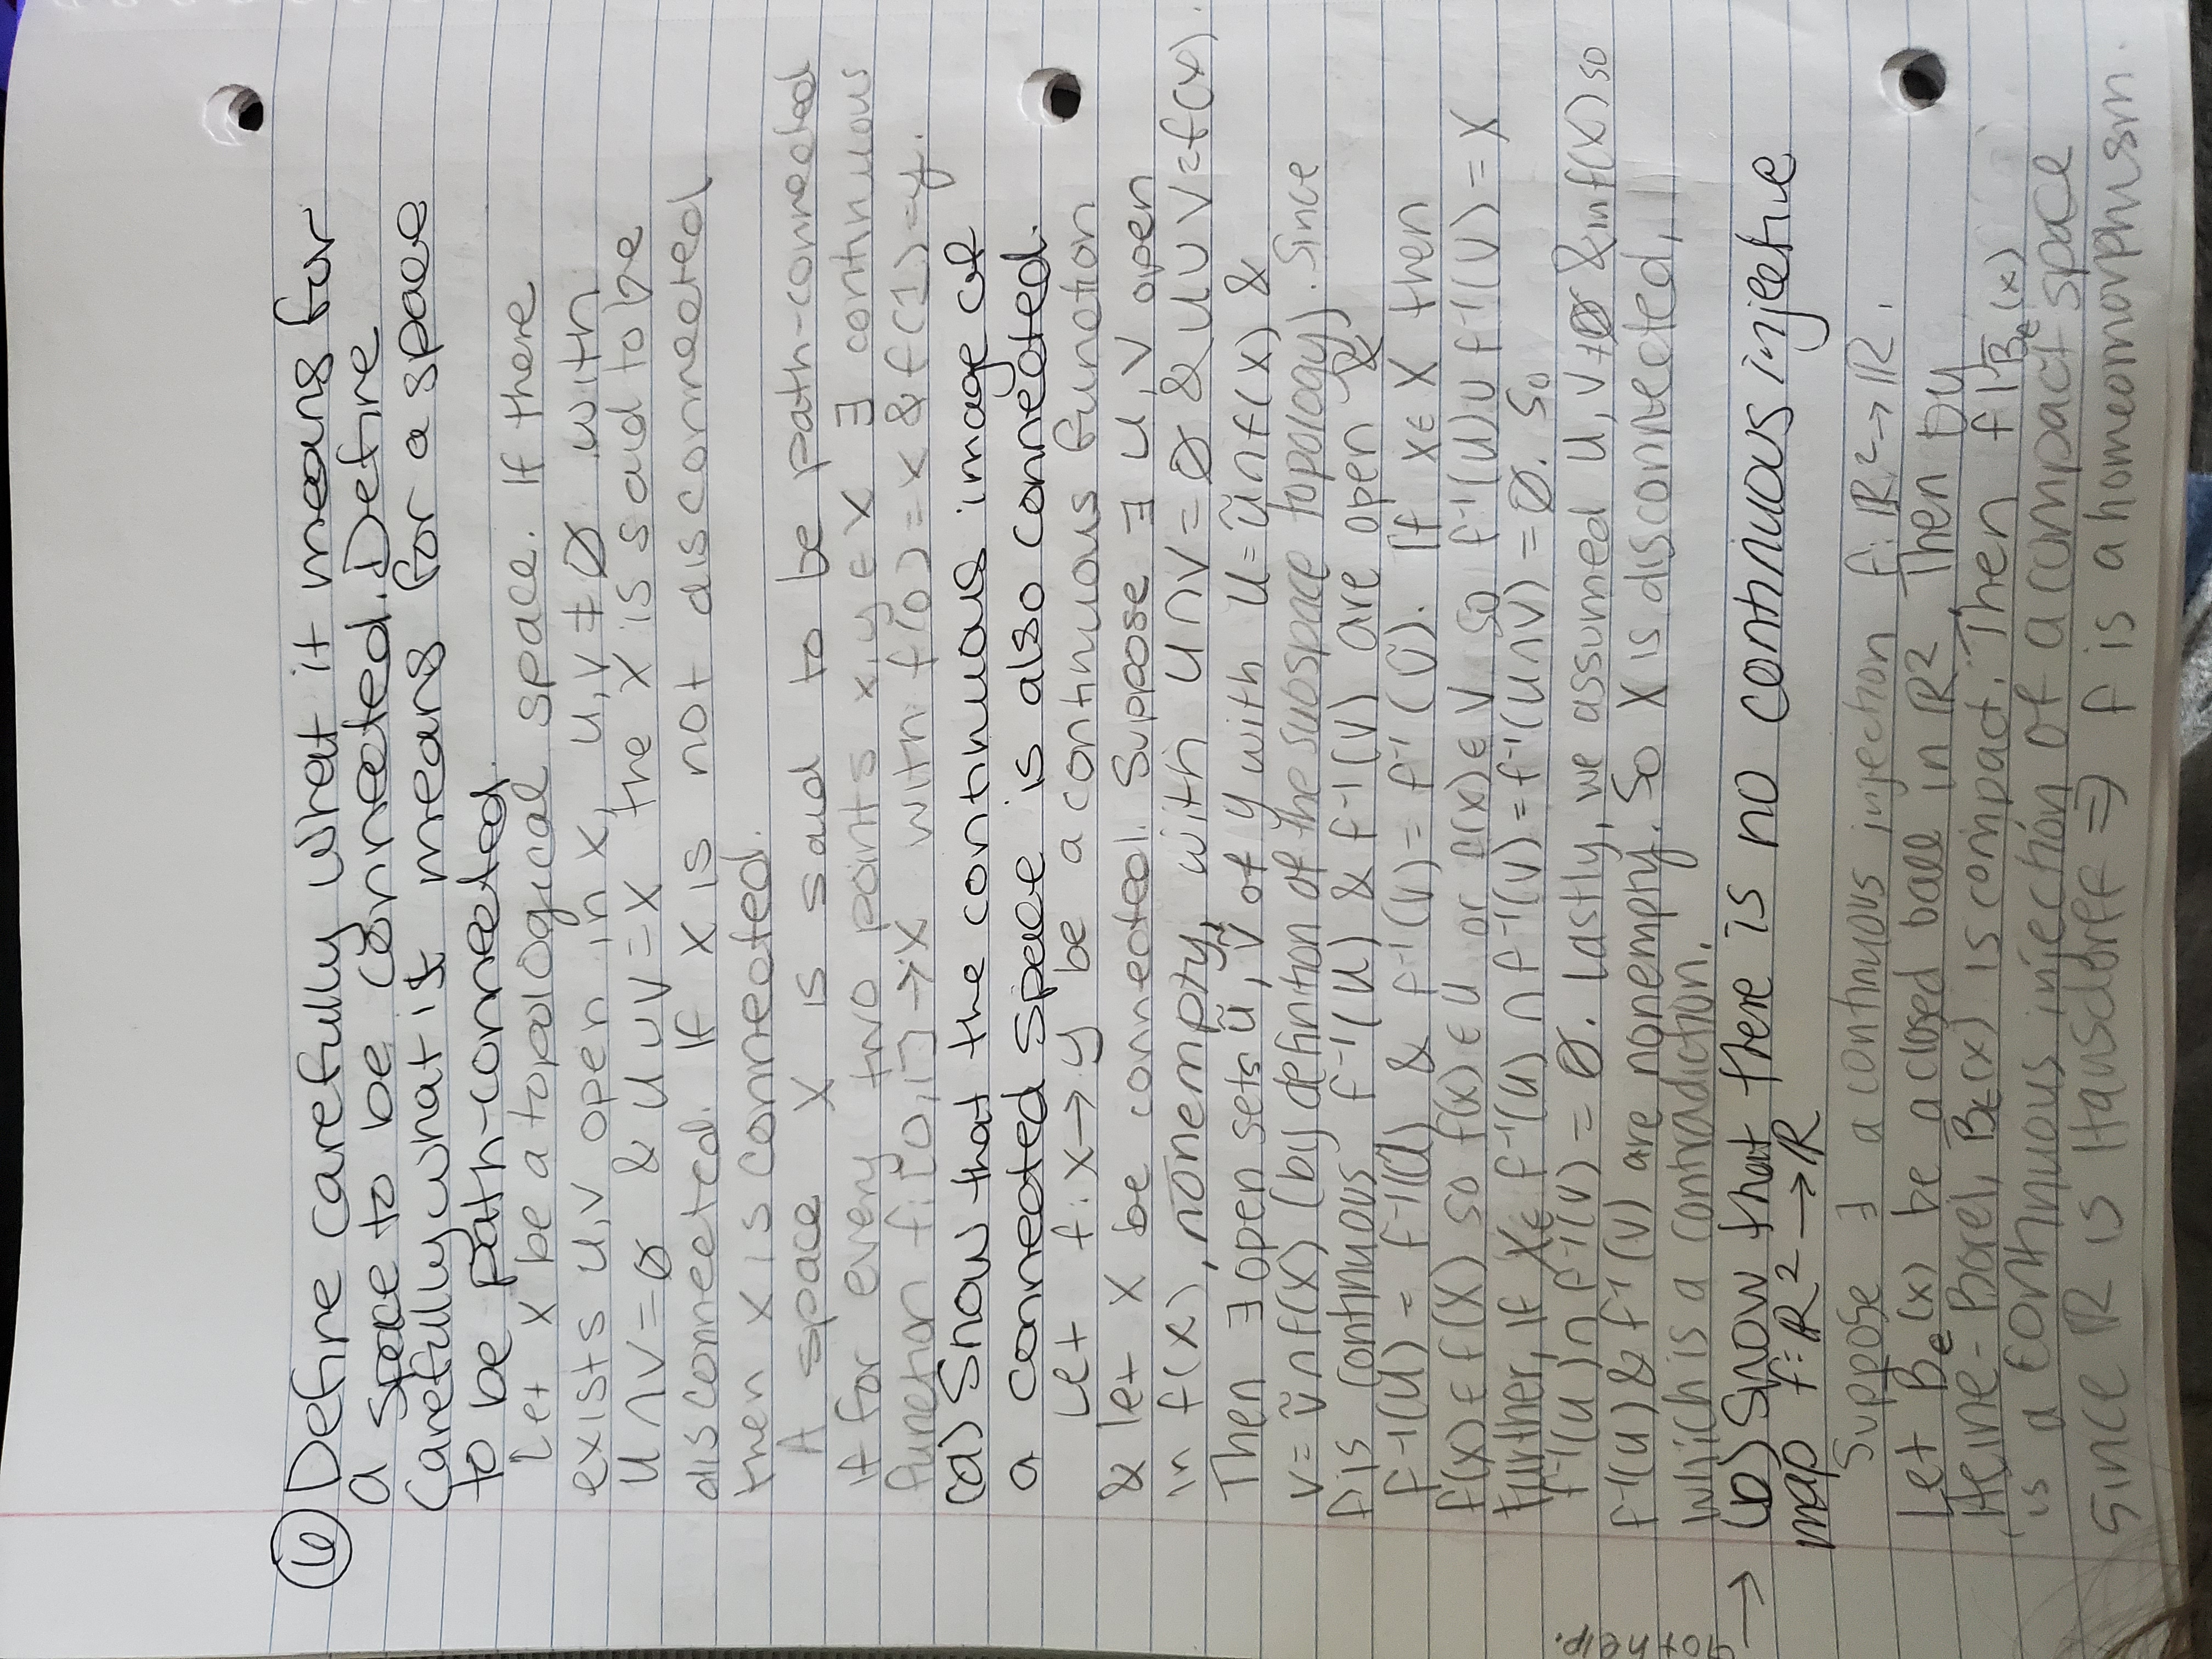 ⑥ Define carefully what it means for
a space to be connected. Define
carefully what it means for a space
to be path-connected.
Let X be a topological space. If there
exists U,V open in X, U,V ≠ ∅ with
U∩V=∅ & U∪V=X the X is said to be
disconnected. If X is not disconnected
then X is connected.
A space X is said to be path-connected
if for every two points x,y ∈ X ∃ continuous
function f:[0,1]→X with f(0)=x & f(1)=y.
(a) Show that the continuous image of
a connected space is also connected.
Let f:X→Y be a continuous function
& let X be connected. Suppose ∃ U,V open
in f(X), nonempty, with U∩V=∅ & U∪V=f(X).
Then ∃ open sets Ũ, Ṽ of Y with U=Ũ∩f(X) &
V=Ṽ∩f(X) (by definition of the subspace topology). Since
f is continuous f⁻¹(U) & f⁻¹(V) are open &
f⁻¹(U) = f⁻¹(Ũ) & f⁻¹(V) = f⁻¹(Ṽ). If x∈X then
f(x)∈f(X) so f(x)∈U or f(x)∈V so f⁻¹(U)∪f⁻¹(V)=X
further, if x∈ f⁻¹(U)∩f⁻¹(V)=f⁻¹(U∩V)=∅. So
f⁻¹(U)∩f⁻¹(V)=∅. Lastly, we assumed U,V≠∅ & in f(X) so
f⁻¹(U) & f⁻¹(V) are nonempty. So X is disconnected,
which is a contradiction.
got help.
→ (b) Show that there is no continuous injective
map f:ℝ²→ℝ
Suppose ∃ a continuous injection f:ℝ²→ℝ.
Let B̅ₑ(x) be a closed ball in ℝ². Then by
Heine-Borel, B̅ₑ(x) is compact. Then f|B̅ₑ(x)
is a continuous injection of a compact space
since ℝ is Hausdorff ⇒ f is a homeomorphism.